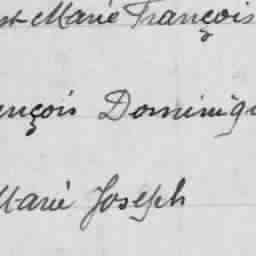 st Marie François
ençois Dominiqu
Marie Joseph